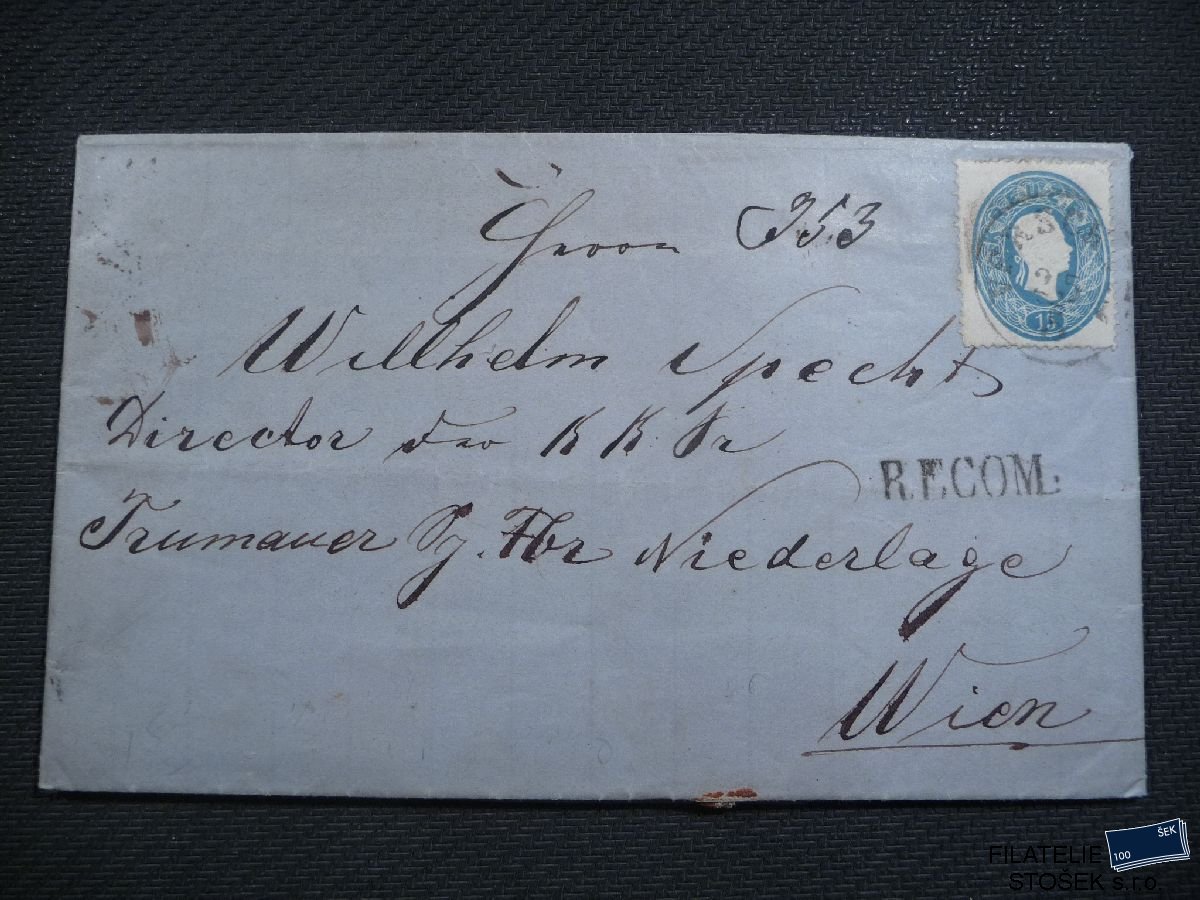 Herrn 353
Willhelm Specht
Director der K K
Trumauer Fbr Niederlage
Wien
RECOM:
15
FILATELIE
STOŠEK s.r.o.
100 ŠEK